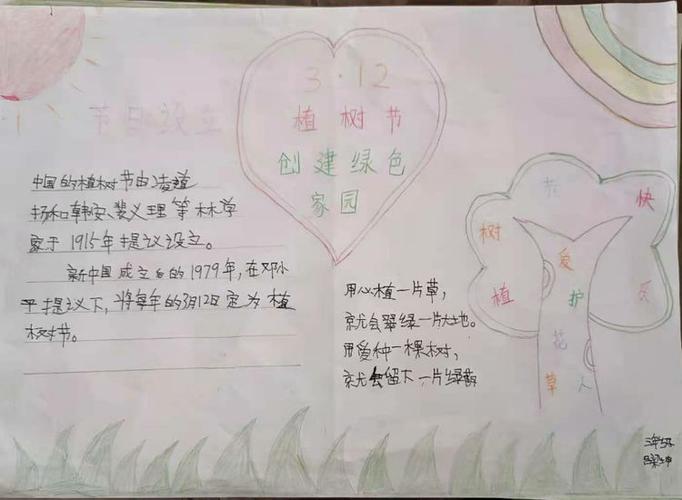 节日设立
3·12
植树节
创建绿色
家园
中国的植树节由凌道
扬和韩安、裴义理等林学
家于1915年提议设立。
新中国成立后的1979年,在邓小
平提议下,将每年的3月12日定为植
树节。
用心植一片草,
就会翠绿一片大地。
用爱种一棵树,
就会留下一片绿荫
植树节快乐
爱护花草
人